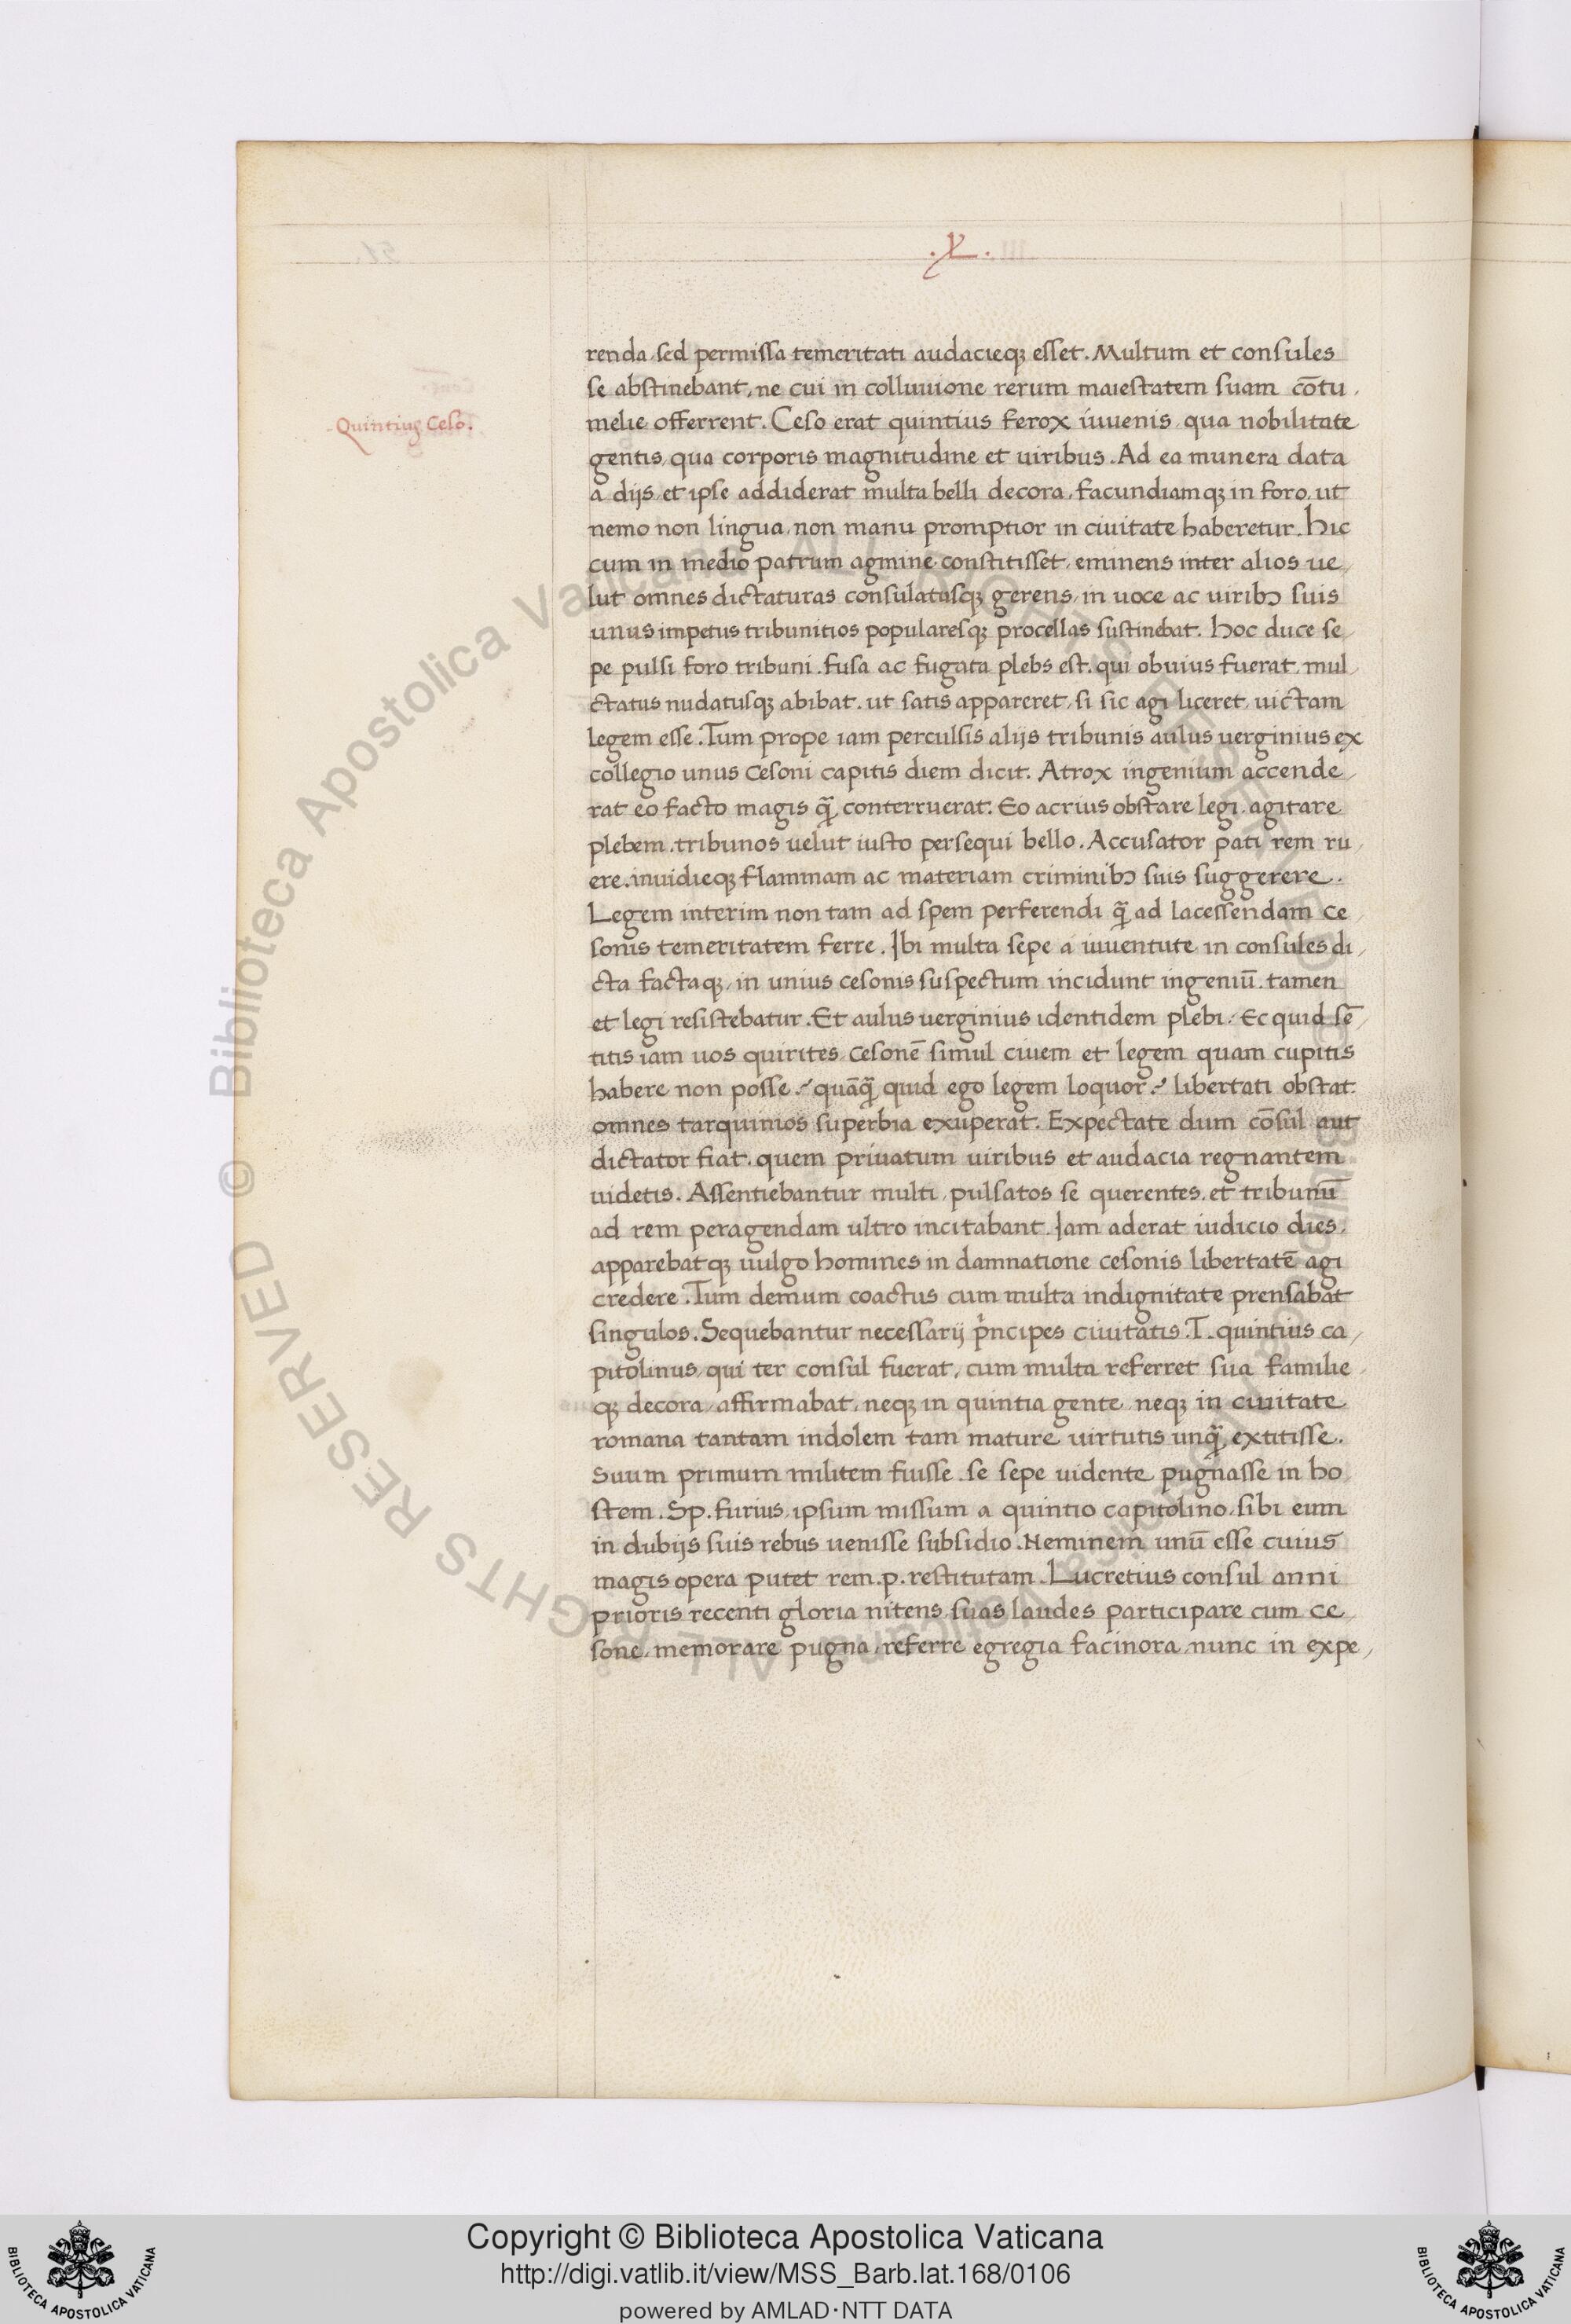 .L.
renda, sed permissa temeritati audacieqꝫ esset. Multum et consules
se abstinebant, ne cui in colluuione rerum maiestatem suam cōtu,
Quintius Ceso.
melie offerrent. Ceso erat quintius ferox iuuenis, qua nobilitate
gentis, qua corporis magnitudine et uiribus. Ad ea munera data
a dijs, et ipse addiderat multa belli decora, facundiamqꝫ in foro, ut
nemo non lingua, non manu promptior in ciuitate haberetur. Hic
cum in medio patrum agmine constitisset, eminens inter alios ue,
lut omnes dictaturas consulatusqꝫ gerens, in uoce ac uiribꝫ suis
unus impetus tribunitios popularesqꝫ procellas sustinebat. Hoc duce se,
pe pulsi foro tribuni. fusa ac fugata plebs est. qui obuius fuerat, mul,
ctatus nudatusqꝫ abibat. ut satis appareret, si sic agi liceret, uictam
legem esse. Tum prope iam perculsis alijs tribunis aulus uerginius ex
collegio unus Cesoni capitis diem dicit. Atrox ingenium accende,
rat eo facto magis ꝙ̄ conterruerat. Eo acrius obstare legi, agitare
plebem. tribunos uelut iusto persequi bello. Accusator pati rem ru,
ere. inuidieqꝫ flammam ac materiam criminibꝫ suis suggerere.
Legem interim non tam ad spem perferendi ꝙ̄ ad lacessendam ce
sonis temeritatem ferre. Ibi multa sepe a iuuentute in consules di,
cta factaqꝫ, in unius cesonis suspectum incidunt ingeniū. tamen
et legi resistebatur. Et aulus uerginius identidem plebi. Ec quid sē,
titis iam uos quirites, Cesonē simul ciuem et legem quam cupitis
habere non posse? quāꝙ̄ quid ego legem loquor? libertati obstat.
omnes tarquinios superbia exuperat. Expectate dum cōsul aut
dictator fiat. quem priuatum uiribus et audacia regnantem
uidetis. Assentiebantur multi, pulsatos se querentes, et tribunū
ad rem peragendam ultro incitabant. Iam aderat iudicio dies,
apparebatqꝫ uulgo homines in damnatione cesonis libertatē agi
credere. Tum demum coactus cum multa indignitate prensabat
singulos. Sequebantur necessarij pͥncipes ciuitatis. T. quintius ca,
pitolinus, qui ter consul fuerat, cum multa referret sua familie,
qꝫ decora, affirmabat, neqꝫ in quintia gente neqꝫ in ciuitate
romana tantam indolem tam mature uirtutis unꝙ̄ extitisse.
Suum primum militem fuisse. se sepe uidente pugnasse in ho,
stem. Sp. furius, ipsum missum a quintio capitolino, sibi eum
in dubijs suis rebus uenisse subsidio. Neminem unū esse cuius
magis opera putet rem. p. restitutam. Lucretius consul anni
prioris recenti gloria nitens, suas laudes participare cum ce,
sone, memorare pugna, referre egregia facinora, nunc in expe,
© Biblioteca Apostolica Vaticana ALL RIGHTS RESERVED
Copyright © Biblioteca Apostolica Vaticana
http://digi.vatlib.it/view/MSS_Barb.lat.168/0106
powered by AMLAD·NTT DATA
BIBLIOTECA APOSTOLICA VATICANA
BIBLIOTECA APOSTOLICA VATICANA